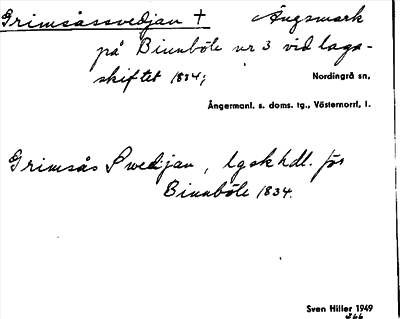 Grimsåssvedjan † Ängsmark
på Binnböle nr 3 vid laga-
skiftet 1834;
Nordingrå sn,
Ångermanl. s. doms. tg., Västernorrl. l.
Grimsås Swedjan, lgskhdl. för
Binnböle 1834.
Sven Hiller 1949
266